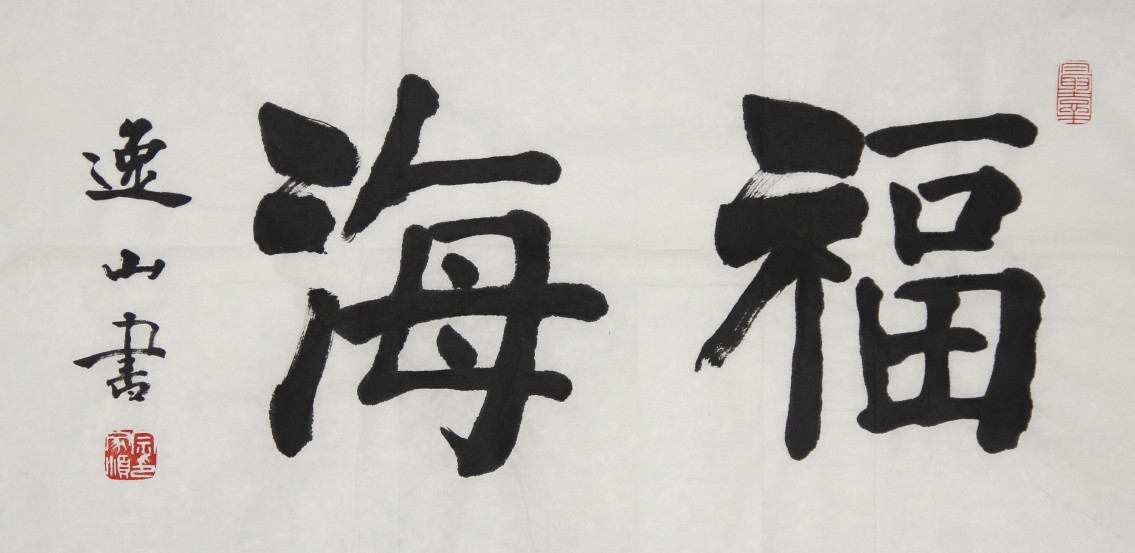 福海
逸山書